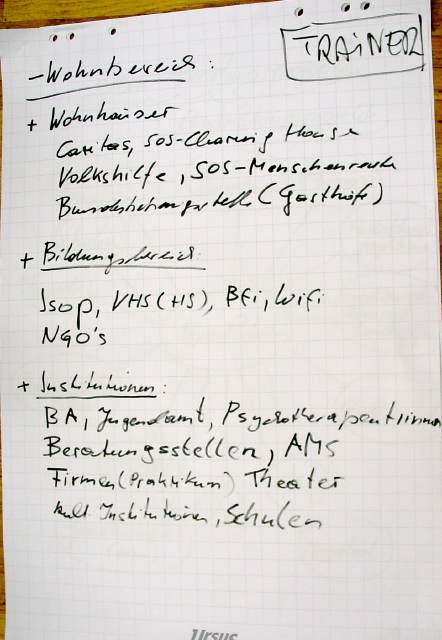 TRAINER
- Wohnbereich :
+ Wohnhäuser
Caritas, SOS-Clearing House
Volkshilfe, SOS-Menschenrechte
(Gasthöfe)
+ Bildungsbereich
Isop, VHS (HS), Bfi, Wifi
NGO's
+ Institutionen :
BA, Jugendamt, Psychotherapeutinnen
Beratungsstellen, AMS
Firmen (Praktikum) Theater
kult. Institutionen, Schulen
Ursus